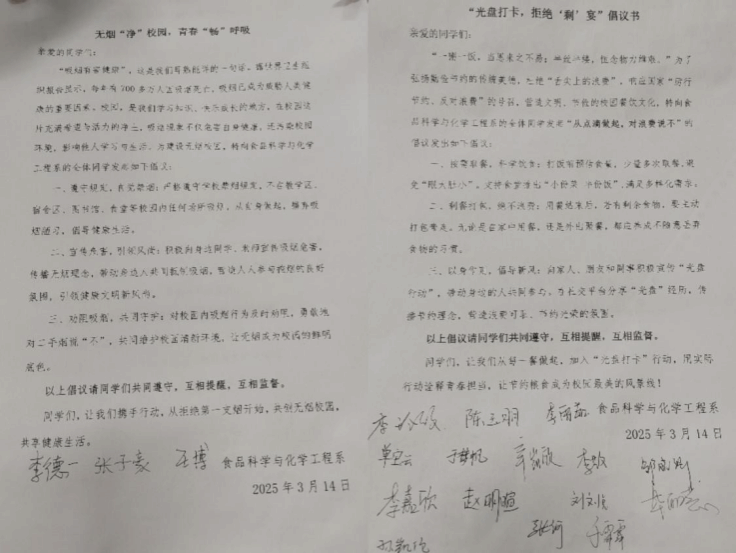 无烟“净”校园，青春“畅”呼吸
亲爱的同学们：
“吸烟有害健康”，这是我们耳熟能详的一句话。据世界卫生组
织报告显示，每年有 700 多万人因吸烟死亡，吸烟已成为威胁人类健
康的重要因素。校园，是我们学习知识、快乐成长的地方。在校园这
片充满希望与活力的净土，吸烟现象不仅危害自身健康，还污染校园
环境，影响他人学习与生活。为建设无烟校区，特向食品科学与化学
工程系的全体同学发出如下倡议：
一、遵守规定，自觉禁烟：严格遵守学校禁烟规定，不在教学区、
宿舍区、图书馆、食堂等校园内任何场所吸烟，从自身做起，摒弃吸
烟陋习，倡导健康生活。
二、宣传危害，引领风尚：积极向身边同学、老师宣传吸烟危害，
传播无烟理念，带动身边人共同抵制吸烟，营造人人参与控烟的良好
氛围，引领健康文明新风尚。
三、劝阻吸烟，共同守护：对校园内吸烟行为及时劝阻，勇敢地
对二手烟说“不”，共同维护校园清新环境，让无烟成为校园的鲜明
底色。
以上倡议请同学们共同遵守，互相提醒，互相监督。
同学们，让我们携手行动，从拒绝第一支烟开始，共创无烟校园，
共享健康生活。
李德一 张子豪 王博 食品科学与化学工程系
2025 年 3 月 14 日
“光盘打卡，拒绝‘剩’宴”倡议书
亲爱的同学们：
“一粥一饭，当思来之不易；半丝半缕，恒念物力维艰。”为了
弘扬勤俭节约的传统美德，杜绝“舌尖上的浪费”，响应国家“厉行
节约、反对浪费”的号召，营造文明、节俭的校园餐饮文化，特向食
品科学与化学工程系的全体同学发出“从点滴做起，对浪费说不”的
倡议发出如下倡议：
一、按需取餐，科学饮食：打饭前预估食量，少量多次取餐，避
免“眼大肚小”，支持食堂推出“小份菜 半份饭”，满足多样化需求。
二、剩餐打包，绝不浪费：用餐结束后，若有剩余食物，要主动
打包带走。无论是在家中用餐，还是外出聚餐，都应养成不随意丢弃
食物的习惯。
三、以身示范，倡导新风：向家人、朋友和同事积极宣传“光盘
行动”，带动身边的人共同参与。在社交平台分享“光盘”经历，传
播节约理念，营造浪费可耻、节约光荣的氛围。
以上倡议请同学们共同遵守，互相提醒，互相监督。
同学们，让我们从每一餐做起，加入“光盘打卡”行动，用实际
行动诠释青春担当，让节约粮食成为校园最美的风景线！
陈三羽 食品科学与化学工程系
2025 年 3 月 14 日
李鑫欣 赵明煊 刘文悦